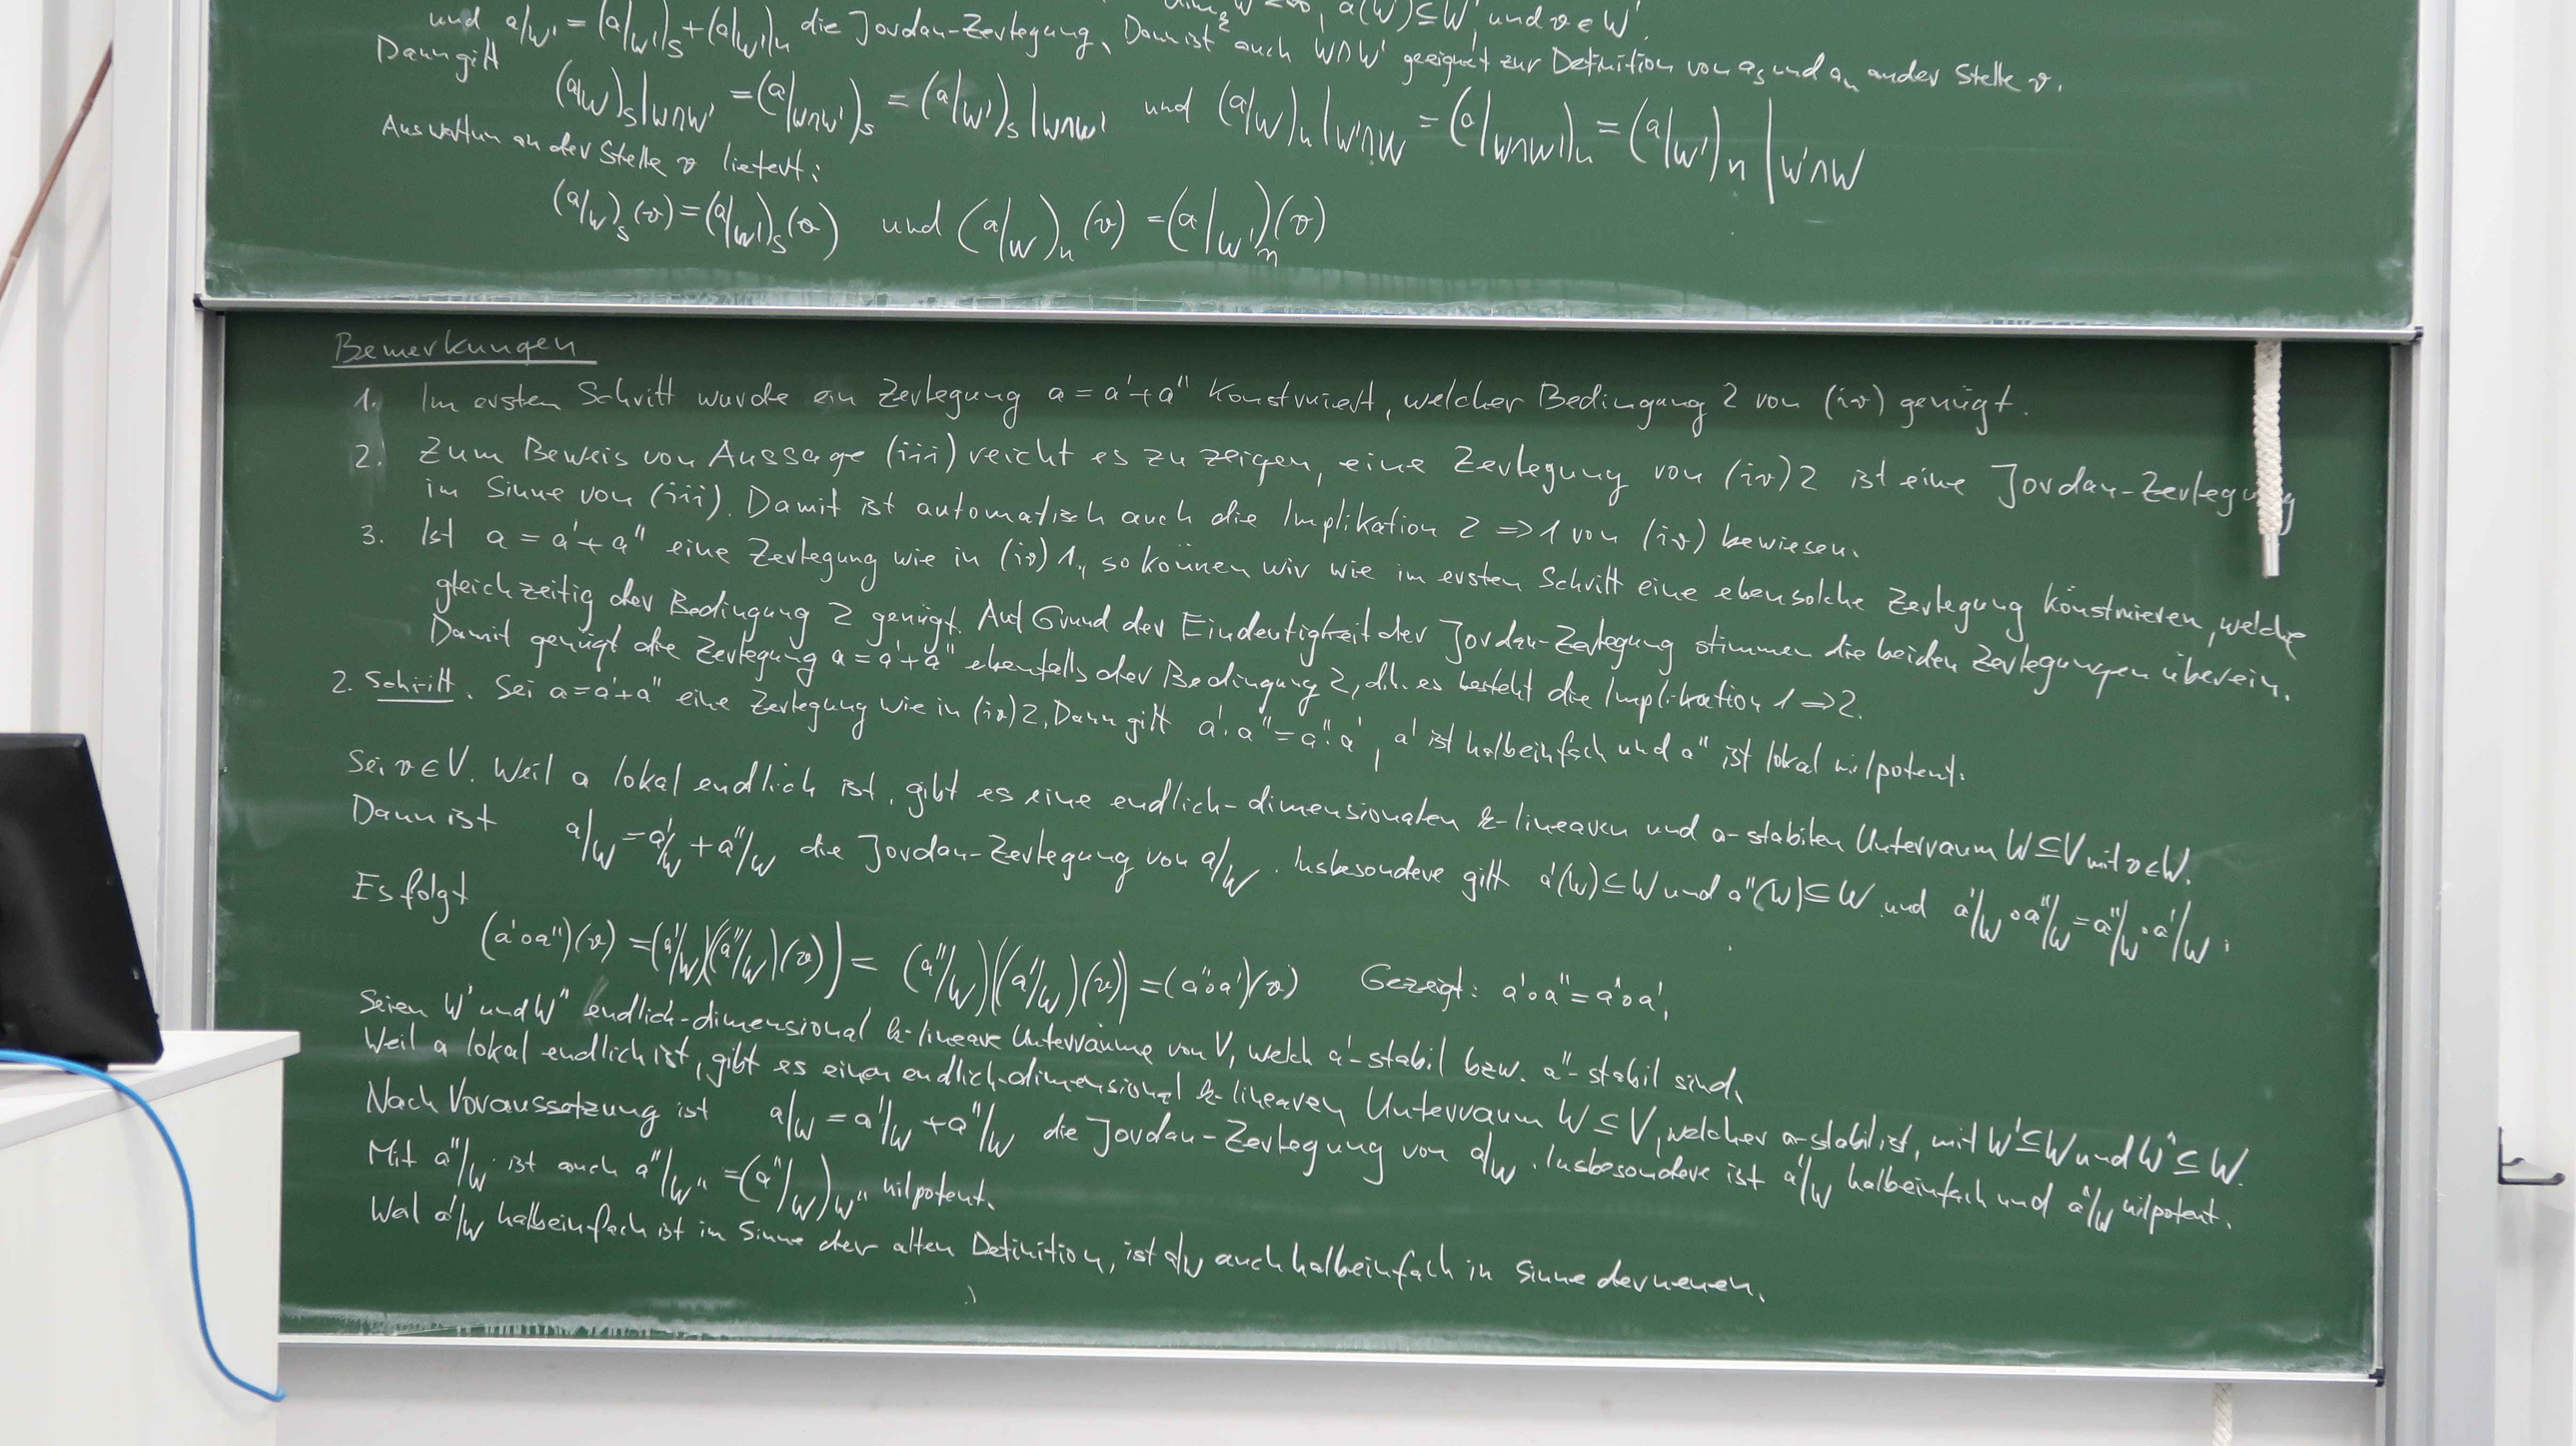 dim_k W' < ∞, a(W') ⊆ W' und v ∈ W'.
und a|W' = (a|W')_s + (a|W')_n die Jordan-Zerlegung. Dann ist auch W∩W' geeignet zur Definition von a_s und a_n an der Stelle v.
Dann gilt
(a|W)_s|W∩W' = (a|W∩W')_s = (a|W')_s|W∩W' und (a|W)_n|W'∩W = (a|W∩W')_n = (a|W')_n|W'∩W
Auswerten an der Stelle v liefert:
(a|W)_s(v) = (a|W')_s(v) und (a|W)_n(v) = (a|W')_n(v)
Bemerkungen
1. Im ersten Schritt wurde ein Zerlegung a = a' + a'' konstruiert, welcher Bedingung 2 von (iv) genügt.
2. Zum Beweis von Aussage (iii) reicht es zu zeigen, eine Zerlegung von (iv) 2 ist eine Jordan-Zerlegung
im Sinne von (iii). Damit ist automatisch auch die Implikation 2 ⇒ 1 von (iv) bewiesen.
3. Ist a = a' + a'' eine Zerlegung wie in (iv) 1., so können wir wie im ersten Schritt eine ebensolche Zerlegung konstruieren, welche
gleichzeitig der Bedingung 2 genügt. Auf Grund der Eindeutigkeit der Jordan-Zerlegung stimmen die beiden Zerlegungen überein.
Damit genügt die Zerlegung a = a' + a'' ebenfalls der Bedingung 2, d.h. es besteht die Implikation 1 ⇒ 2.
2. Schritt. Sei a = a' + a'' eine Zerlegung wie in (iv) 2. Dann gilt a'·a'' = a''·a', a' ist halbeinfach und a'' ist lokal nilpotent.
Sei v ∈ V. Weil a lokal endlich ist, gibt es eine endlich-dimensionalen k-linearen und a-stabilen Unterraum W ⊆ V mit v ∈ W.
Dann ist a|W = a'|W + a''|W die Jordan-Zerlegung von a|W. Insbesondere gilt a'(W) ⊆ W und a''(W) ⊆ W und a'|W ∘ a''|W = a''|W ∘ a'|W.
Es folgt
(a'∘a'')(v) = (a'|W)((a''|W)(v)) = (a''|W)((a'|W)(v)) = (a''∘a')(v) Gezeigt: a'∘a'' = a''∘a'.
Seien W' und W'' endlich-dimensional k-lineare Unterräume von V, welch a'-stabil bzw. a''-stabil sind.
Weil a lokal endlich ist, gibt es einen endlich-dimensional k-linearen Unterraum W ⊆ V, welcher a-stabil ist, mit W' ⊆ W und W'' ⊆ W.
Nach Voraussetzung ist a|W = a'|W + a''|W die Jordan-Zerlegung von a|W. Insbesondere ist a'|W halbeinfach und a''|W nilpotent.
Mit a''|W ist auch a''|W'' = (a''|W)|W'' nilpotent.
Weil a'|W halbeinfach ist im Sinne der alten Definition, ist a'|W auch halbeinfach in Sinne der neuen.